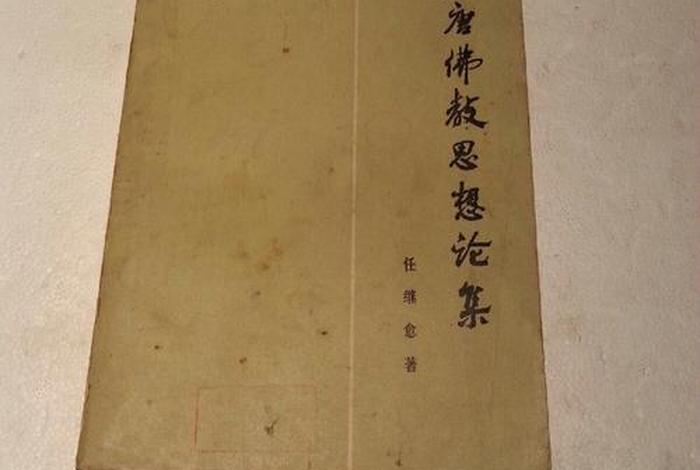 唐佛教思想论集
任继愈著